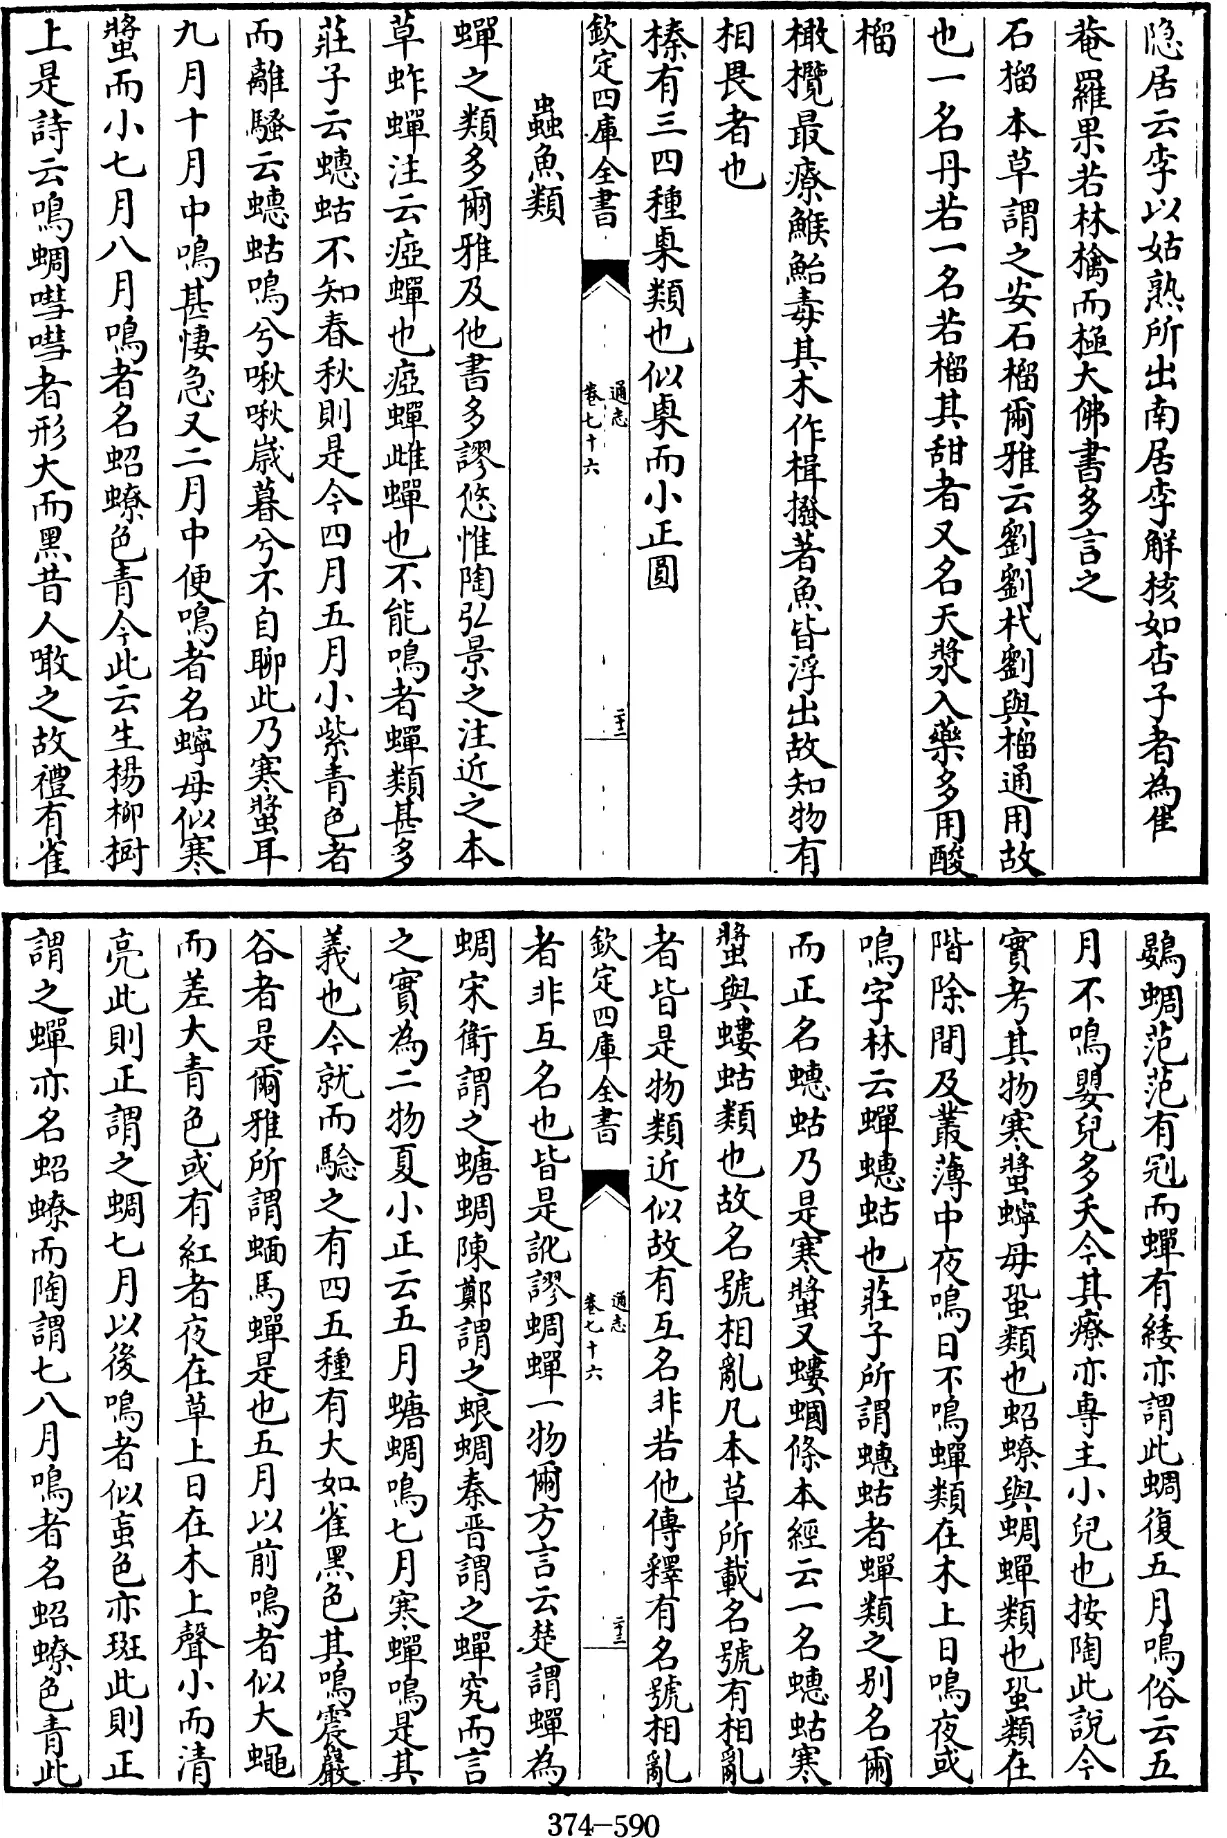 隐居云李以姑熟所出南居李解核如杏子者為隹
菴羅果若林檎而極大佛書多言之
石榴本草謂之安石榴爾雅云劉劉杙劉與榴通用故
也一名丹若一名若榴其甜者又名天漿入藥多用酸
榴
橄欖最療鯸鮐毒其木作楫撥著魚皆浮出故知物有
相畏者也
榛有三四種㮚類也似㮚而小正圓
欽定四庫全書
通志
卷七十六
二十二
蟲魚類
蟬之類多爾雅及他書多謬悠惟陶弘景之注近之本
草蚱蟬注云瘂蟬也瘂蟬雌蟬也不能鳴者蟬類甚多
莊子云蟪蛄不知春秋則是今四月五月小紫青色者
而離騷云蟪蛄鳴兮啾啾歲暮兮不自聊此乃寒螿耳
九月十月中鳴甚悽急又二月中便鳴者名蟀母似寒
螿而小七月八月鳴者名蛁蟟色青今此云生楊柳樹
上是詩云鳴蜩嘒嘒者形大而黑昔人噉之故禮有雀
鷃蜩范范有冠而蟬有緌亦謂此蜩復五月鳴俗云五
月不鳴嬰兒多夭今其療亦專主小兒也按陶此說今
實考其物寒螿蟀母蛩類也蛁蟟與蜩蟬類也蛩類在
階除間及叢薄中夜鳴日不鳴蟬類在木上日鳴夜或
鳴字林云蟬蟪蛄也莊子所謂蟪蛄者蟬類之別名爾
而正名蟪蛄乃是寒螿又螻蟈條本經云一名蟪蛄寒
螿與螻蛄類也故名號相亂凡本草所載名號有相亂
者皆是物類近似故有互名非若他傳釋有名號相亂
欽定四庫全書
通志
卷七十六
二十三
者非互名也皆是訛謬蜩蟬一物爾方言云楚謂蟬為
蜩宋衛謂之螗蜩陳鄭謂之蜋蜩秦晉謂之蟬究而言
之實為二物夏小正云五月螗蜩鳴七月寒蟬鳴是其
義也今就而驗之有四五種有大如雀黑色其鳴震巖
谷者是爾雅所謂蝒馬蟬是也五月以前鳴者似大蠅
而差大青色或有紅者夜在草上日在木上聲小而清
亮此則正謂之蜩七月以後鳴者似䖟色亦斑此則正
謂之蟬亦名蛁蟟而陶謂七八月鳴者名蛁蟟色青此
374-590